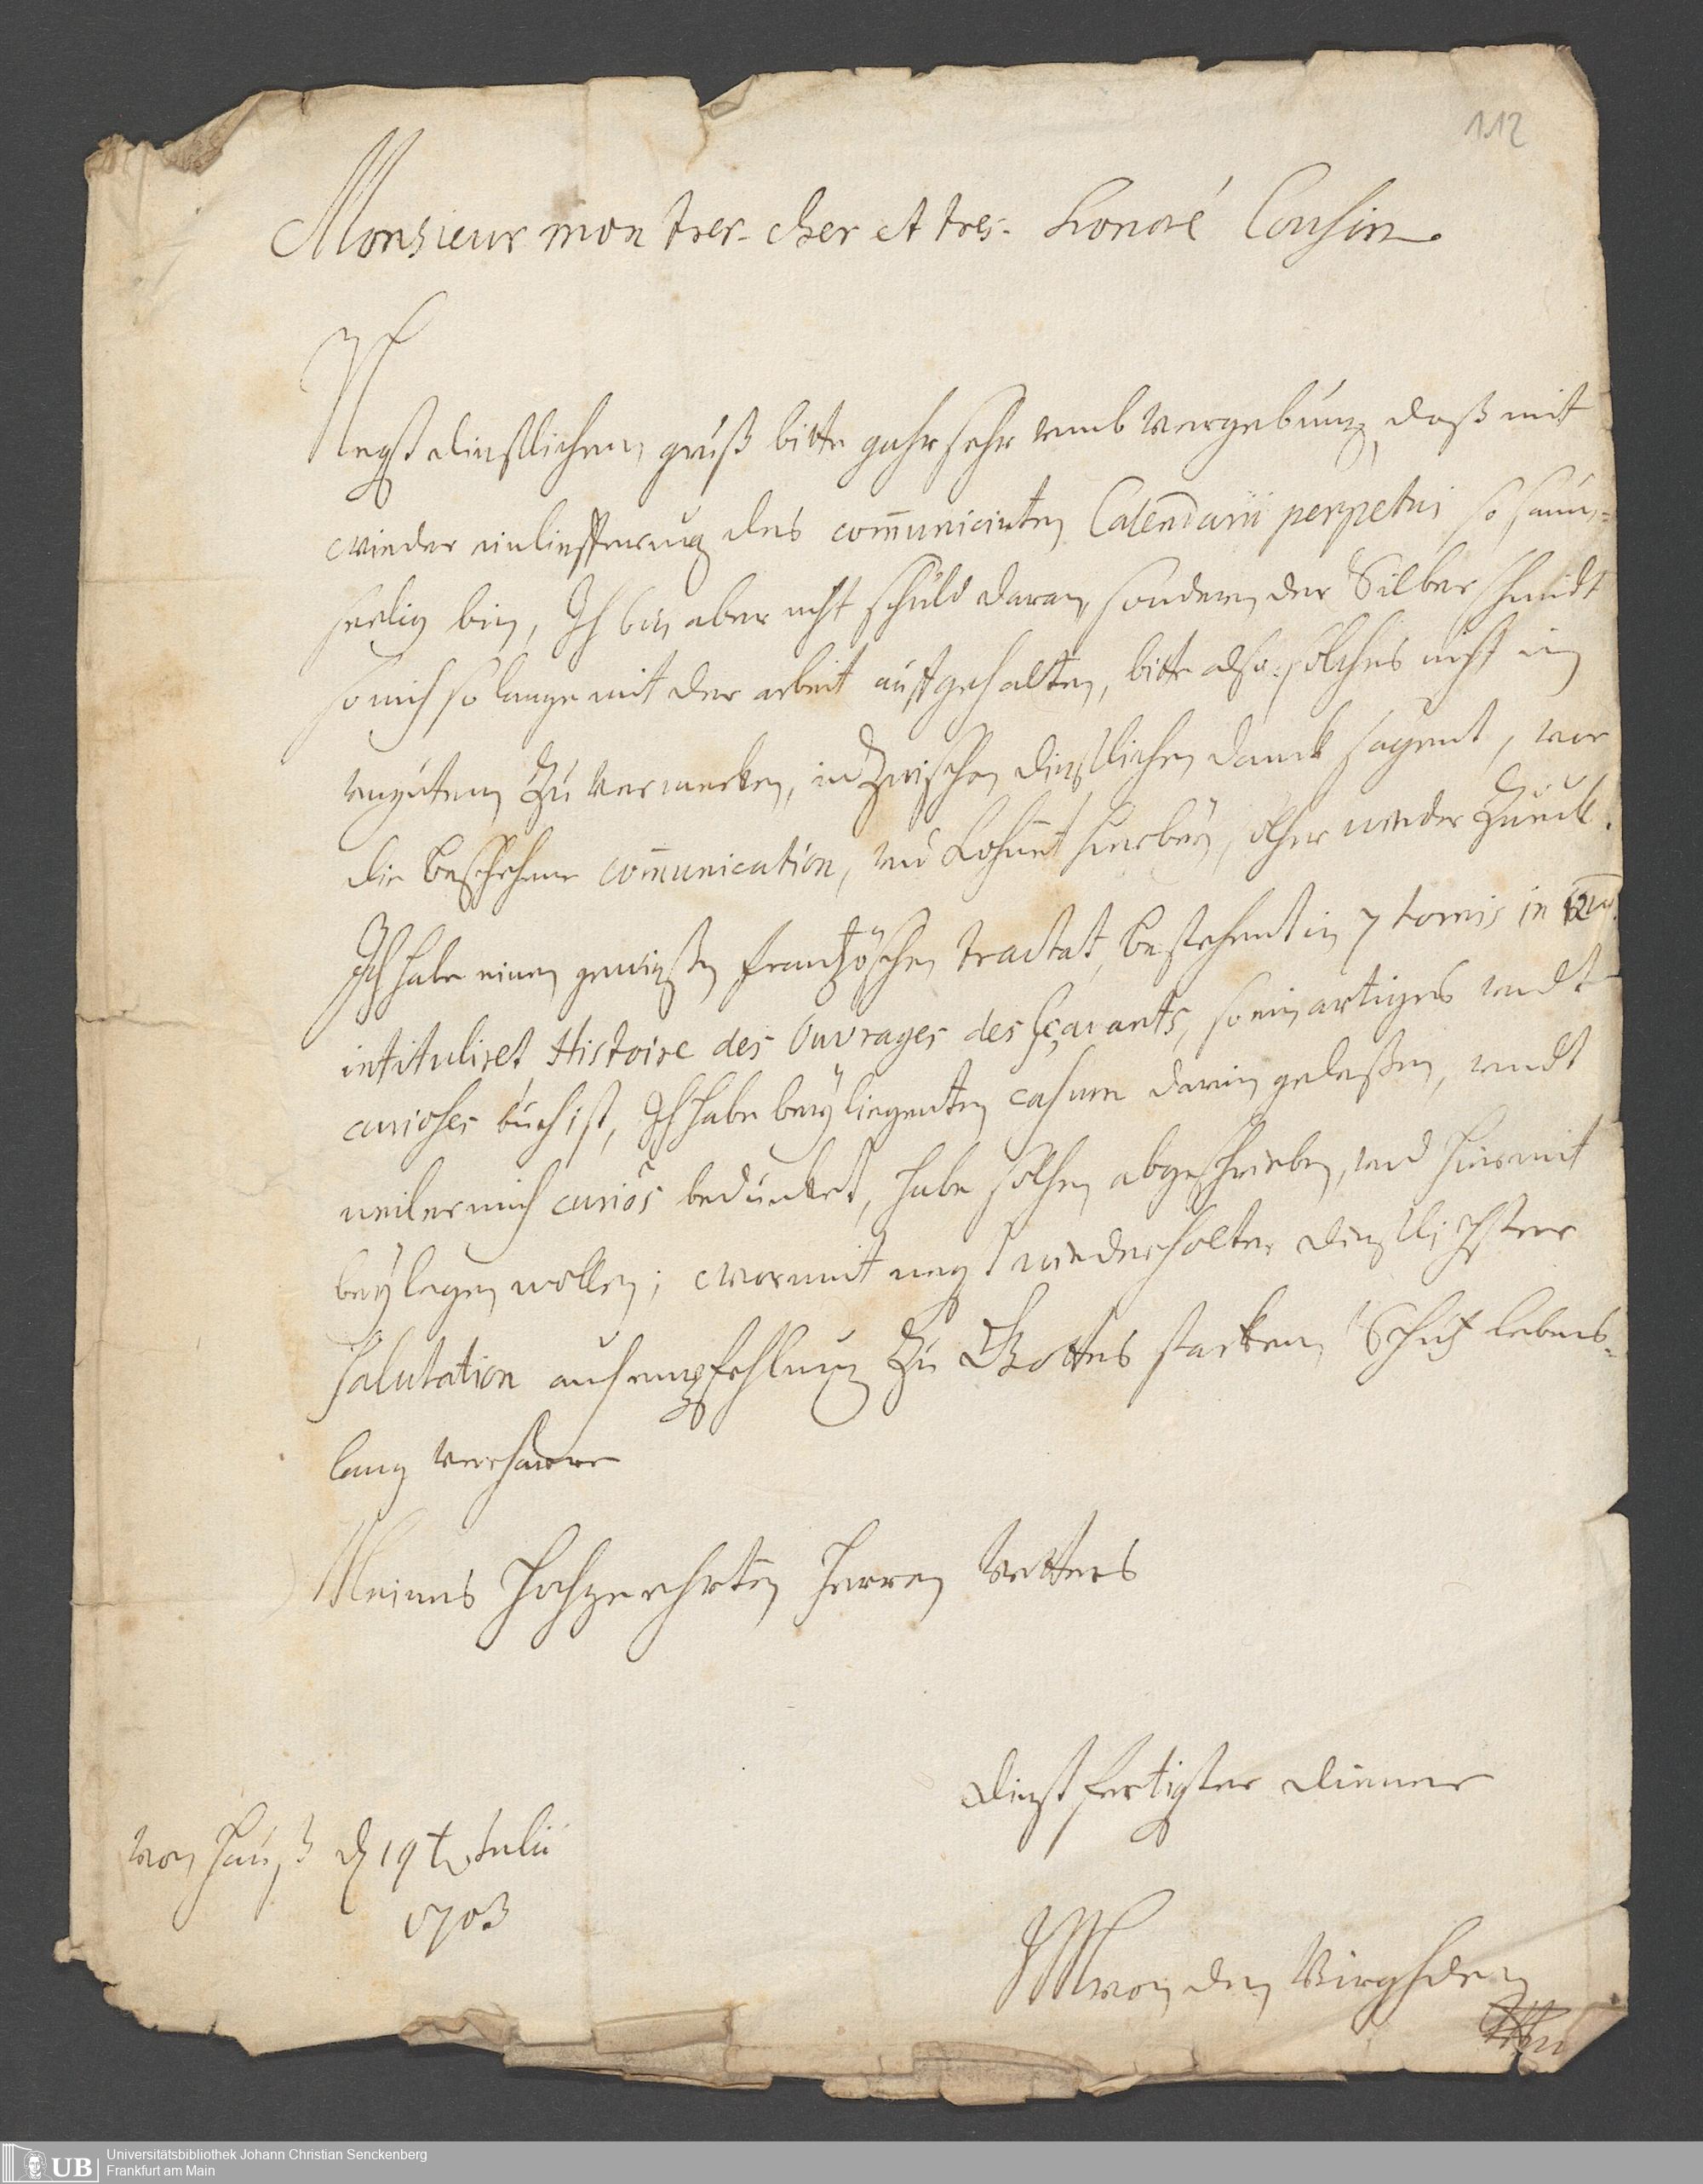 112
Monsieur mon tres-cher et tres-honoré Cousin
Negst dinstlichem gruß bitte gahr sehr umb vergebung, daß mit
wieder einlieferung des com̅unicirten Calendarii perpetui so saum=
seelig bin, Ich bin aber nicht schuld daran, sondern der Silberschmidt
so mich so lange mit der arbeit auffgehalten, bitte also solches nicht in
ungutem zu vermerken, inzwischen dinstlichen danck sagent, vor
die beschehene com̅unication, und kom̅t hierbey, selber wieder zurück.
Ich habe einen gewißen frantzöschen tractat, bestehent in 7 tomis in 12mo.
intituliret Histoire des Ouvrages des Sçavants, so ein artiges undt
curioses buch ist, Ich habe beyliegenten casum darin geleßen, undt
weil er mich curiös bedüncket, habe solchen abgeschrieben, und hiermit
beylegen wollen; wormit negst wiederholter dinstlichster
salutation auch empfehlung zu Gottes starken Schutz lebens=
lang verharre
Meines Hochgeehrten Herren Vetters
dinstfertigster diener
von Hauß d 19t Julii
1703
von den Birghden